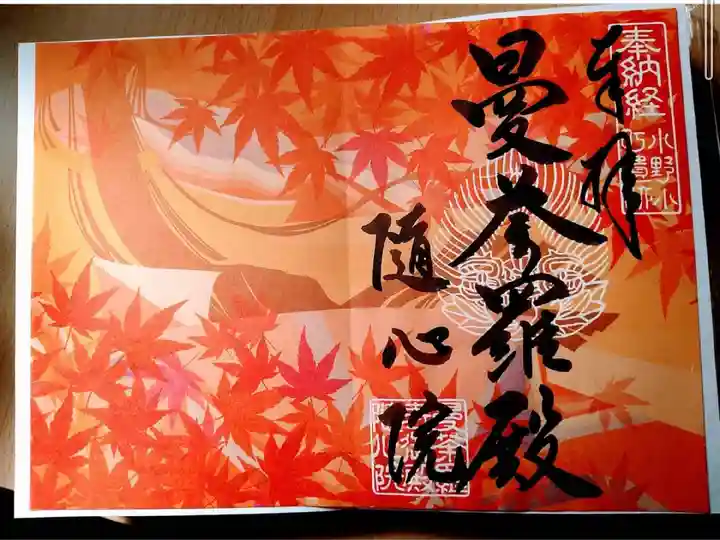 奉納経
小野小
町遺跡
奉拝
曼荼羅殿
隨心院